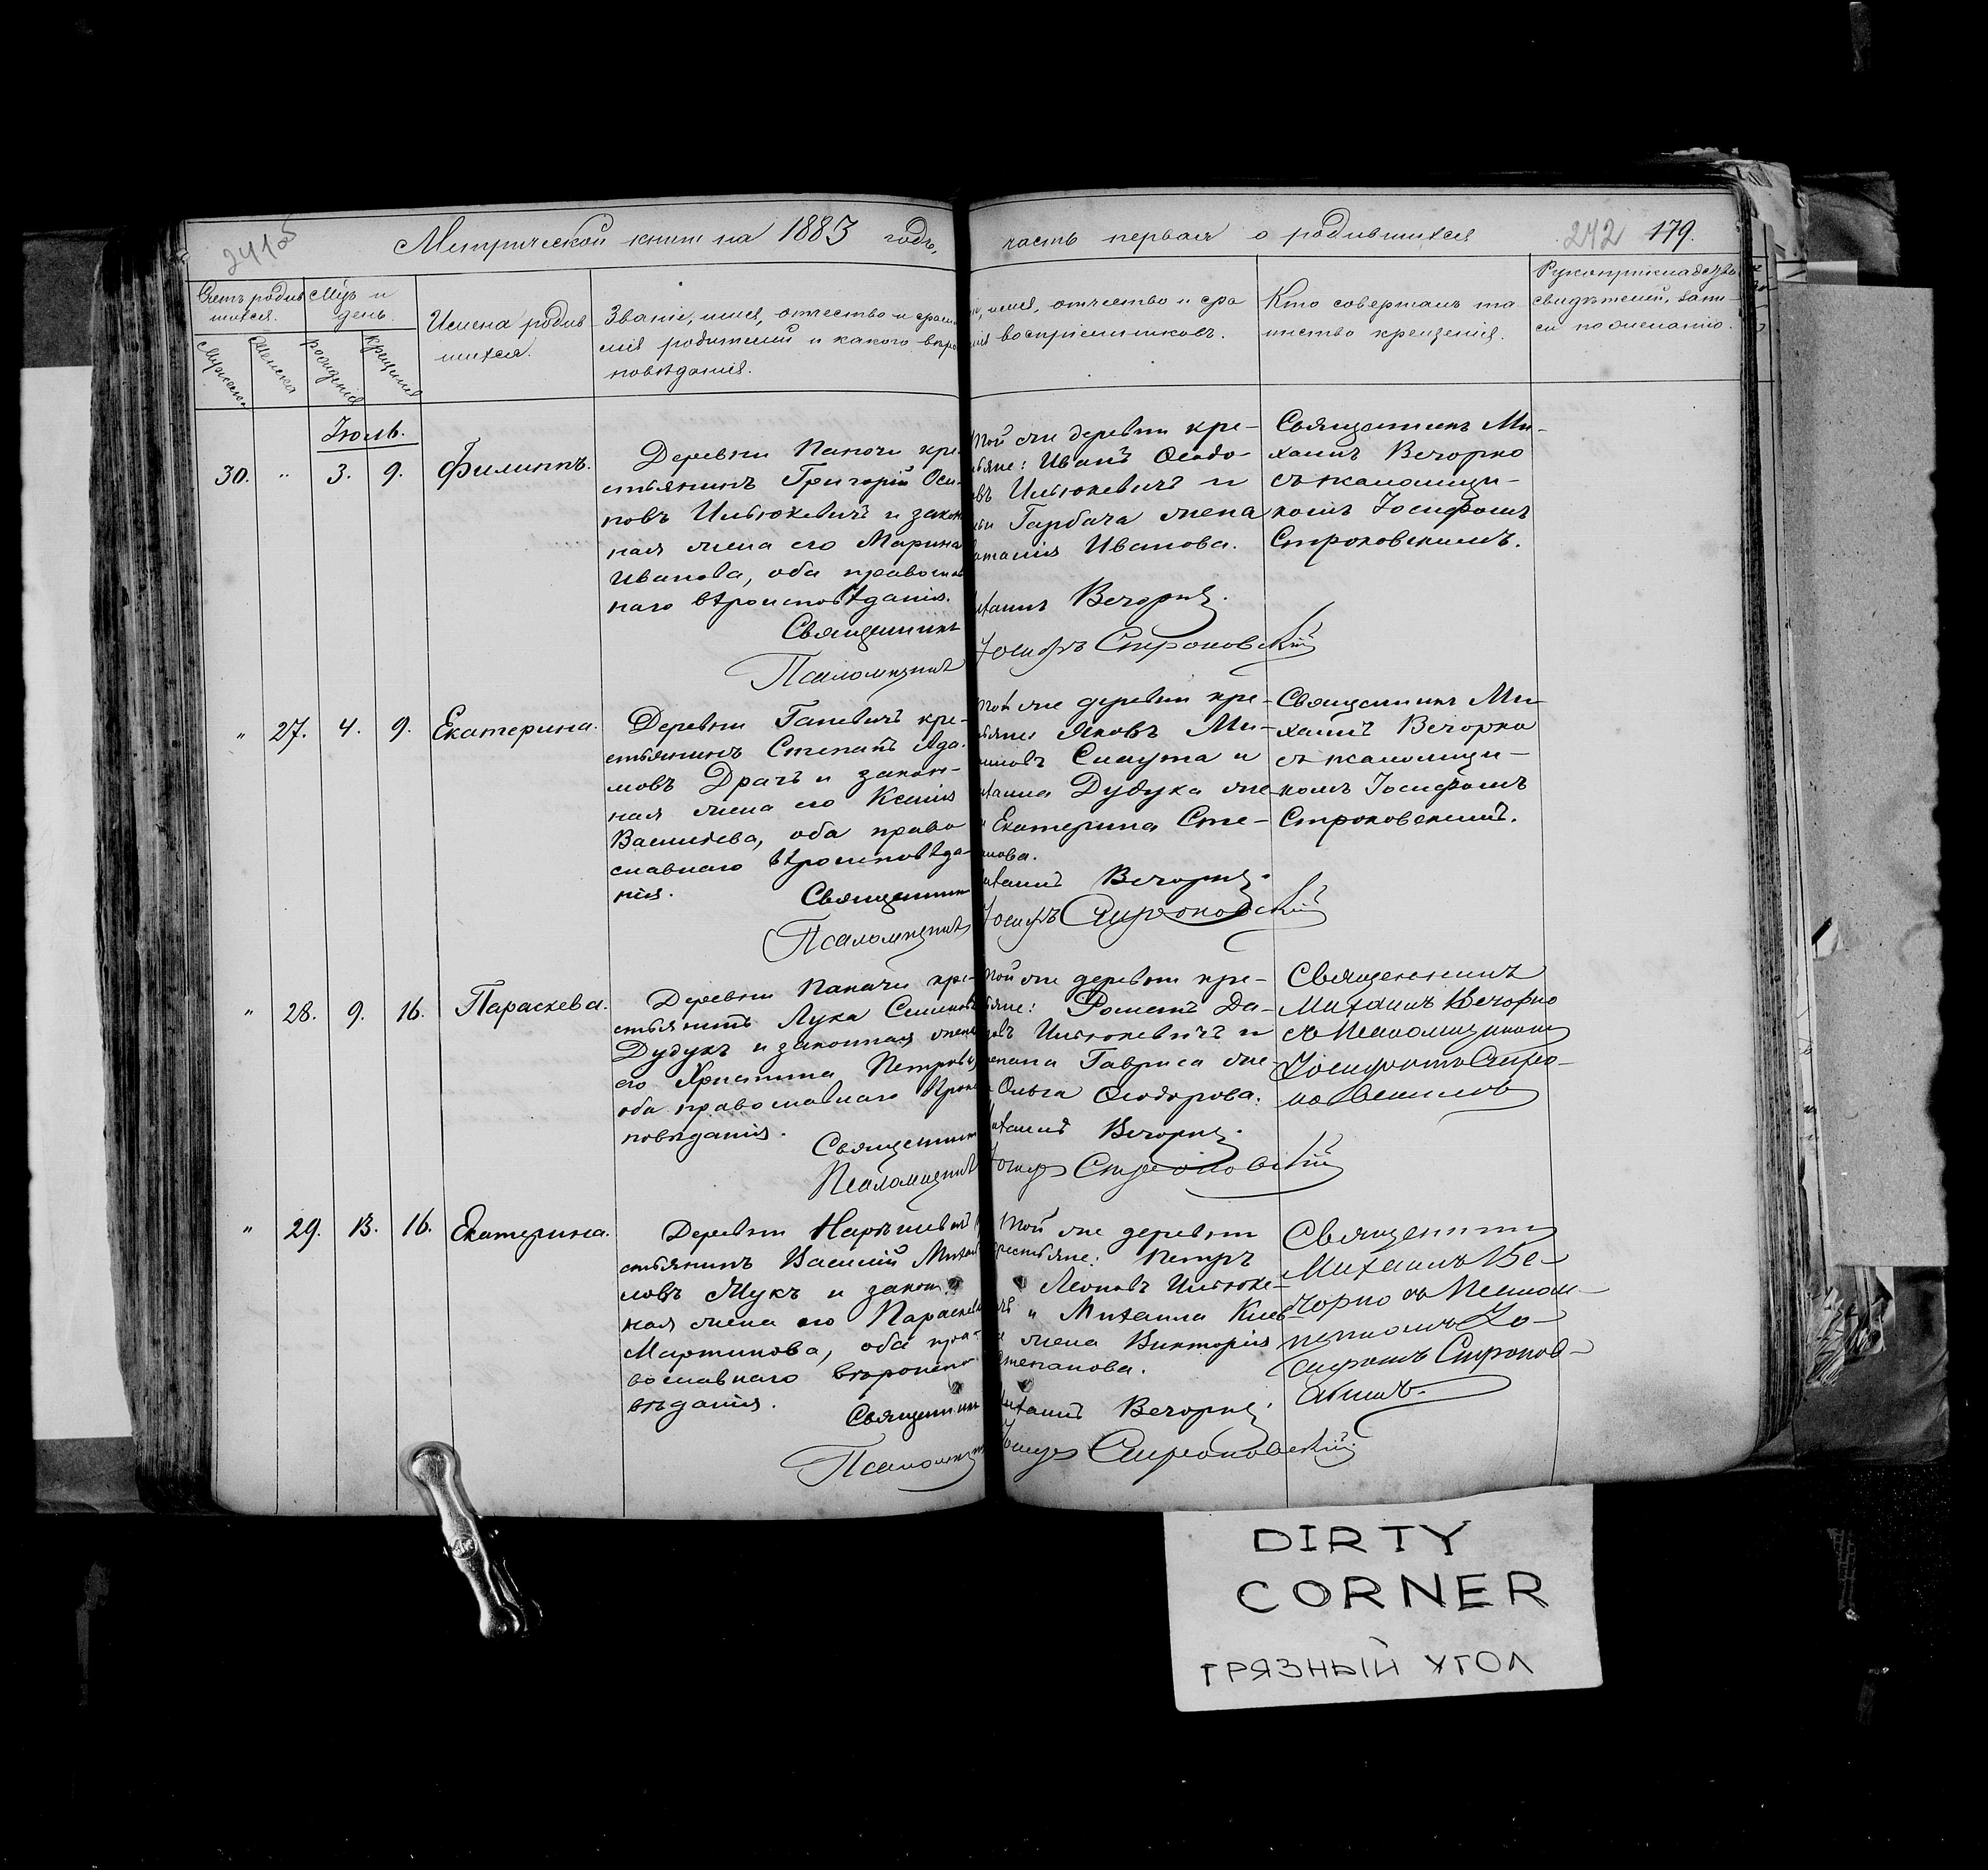 Метрической книги на 1883 годъ,
часть первая о родившихся
242 179.
Счетъ родив
шихся.
Мужска.
Женска
Мѣц и
день.
рожденія
крещенія
Имена родив
шихся.
Званіе, имя, отчество и фами
лія родителей и какого вѣро
исповѣданія.
имя, отчество и фа
лія воспріемниковъ.
Кто совершалъ та
инство крещенія.
Рукоприкладство
свидѣтелей, запи
си по желанію.
Іюль.
30. " 3. 9. Филиппъ.
Деревни Пакочи кре
стьянинъ Григорій Оси
повъ Ильюкевичъ и закон
ная жена его Марина
Иванова, оба православ
наго вѣроисповѣданія.
Священникъ
Псаломщикъ
той же деревни кре-
стьяне: Иванъ Ѳеодо-
овъ Ильюкевичъ и
Гарбача жена
Иванова.
Михаилъ Вечорко.
Іосифъ Строковскій
Священникъ Ми-
хаилъ Вечорко
съ псаломщи-
комъ Іосифомъ
Строковскимъ.
" 27. 4. 9. Екатерина.
Деревни Ганевичъ кре-
стьянинъ Степанъ Ада-
мовъ Драчъ и закон-
ная жена его Ксенія
Васильева, оба право
славнаго вѣроисповѣда-
нія. Священникъ
Псаломщикъ
той же деревни кре-
стьяне Яковъ Ми-
Смаута и
Дудука же-
Екатерина Сте-
панова.
Михаилъ Вечорко.
Іосифъ Строковскій
Священникъ Ми-
хаилъ Вечорко
съ псаломщи-
комъ Іосифомъ
Строковскимъ.
" 28. 9. 16. Параскева.
Деревни Пакочи кре-
стьянинъ Лука Семеновъ
Дудукъ и законная жена
его Христина Петрова,
оба православнаго вѣрои
повѣданія.
Священникъ
Псаломщикъ
той же деревни кре-
стьяне: Романъ Да-
Ильюкевичъ и
Гавриса же-
Ольга Ѳеодорова.
Михаилъ Вечорко.
Іосифъ Строковскій
Священникъ
Михаилъ Вечорко
съ Псаломщикомъ
Іосифомъ Стро-
ковскимъ
" 29. 13. 16. Екатерина.
Деревни
стьянинъ Василій Михаи
ловъ Жукъ и закон
ная жена его Параскева
Мартинова, оба пра-
вославнаго вѣроиспо
вѣданія.
Священникъ
Псаломщикъ
Той же деревни
крестьяне: Петръ
Леоновъ Ильюке-
чъ и Михаила
жена Викторія
Степанова.
Михаилъ Вечорко.
Іосифъ Строковскій
Священникъ
Михаилъ Ве-
чорко съ Псалом-
щикомъ Іо-
сифомъ Строков-
скимъ.
DIRTY
CORNER
ГРЯЗНЫЙ УГОЛ